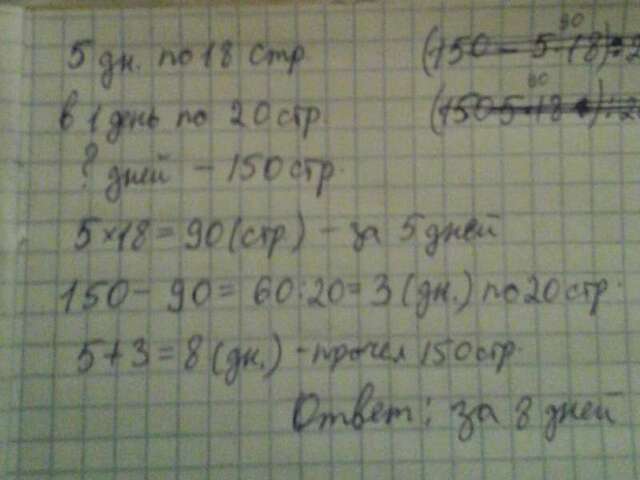 5 дн. по 18 стр.
(150 - 5·18):2
90
в 1 день по 20 стр.
(150 5·18):2
90
? дней - 150 стр.
5×18 = 90 (стр.) - за 5 дней
150 - 90 = 60:20 = 3 (дн.) по 20 стр.
5+3 = 8 (дн.) - прочел 150 стр.
Ответ: за 8 дней